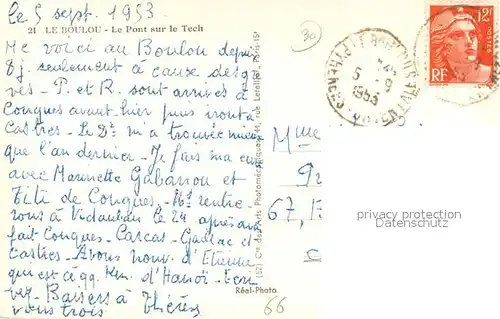 le 5 sept. 1953
21 LE BOULOU - Le Pont sur le Tech
Me voici au Boulou depuis
8j. seulement à cause des grè
ves - P. et R. sont arrivés à
Conques avant-hier puis iront à
Castres - Le Dr m'a trouvée mieux
que l'an dernier - Je fais ma cure
avec Marinette Gabanou et
Titi de Conques - Ns rentre
rons à Vidauban le 24 après avoir
fait Conques - Carcas - Gaillac et
Castres - Avons nouv. d'Etienne
qui est à qq. Km. d'Hanoï - Ecri
vez - Baisers à
vous trois Thérèse
Réal-Photo
66
30
(52) Cie des Arts Photomécaniques, 44, rue Letellier, Paris-15e
Mme
67,
12F
POSTES
RF
5 - 9
1953
PYRÉNÉES
privacy protection
Datenschutz